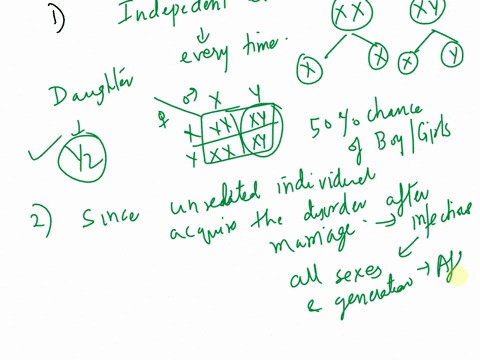 1) Indepedent
every time.
XX XY
X X X Y
Daughter
1/2
♂ X Y
♀
X XX XY
X XX XY
50% chance
of Boy/Girls
2) Since unrelated individual
acquire the disorder after
marriage. → infectious
all sexes
& generation →